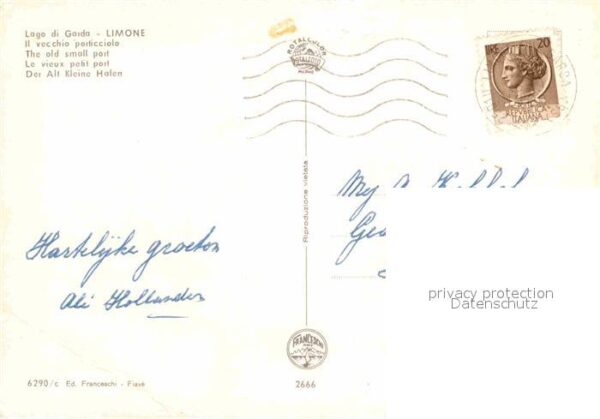 Lago di Garda - LIMONE
Il vecchio porticciolo
The old small port
Le vieux petit port
Der Alt Kleine Hafen
ROTALCOLOR
20
REPVBBLICA
ITALIANA
Riproduzione vietata
Mej
Hartelijke groeten
Ali Hollander
privacy protection
Datenschutz
FRANCESCHI
6290/c Ed. Franceschi - Fiavé
2666